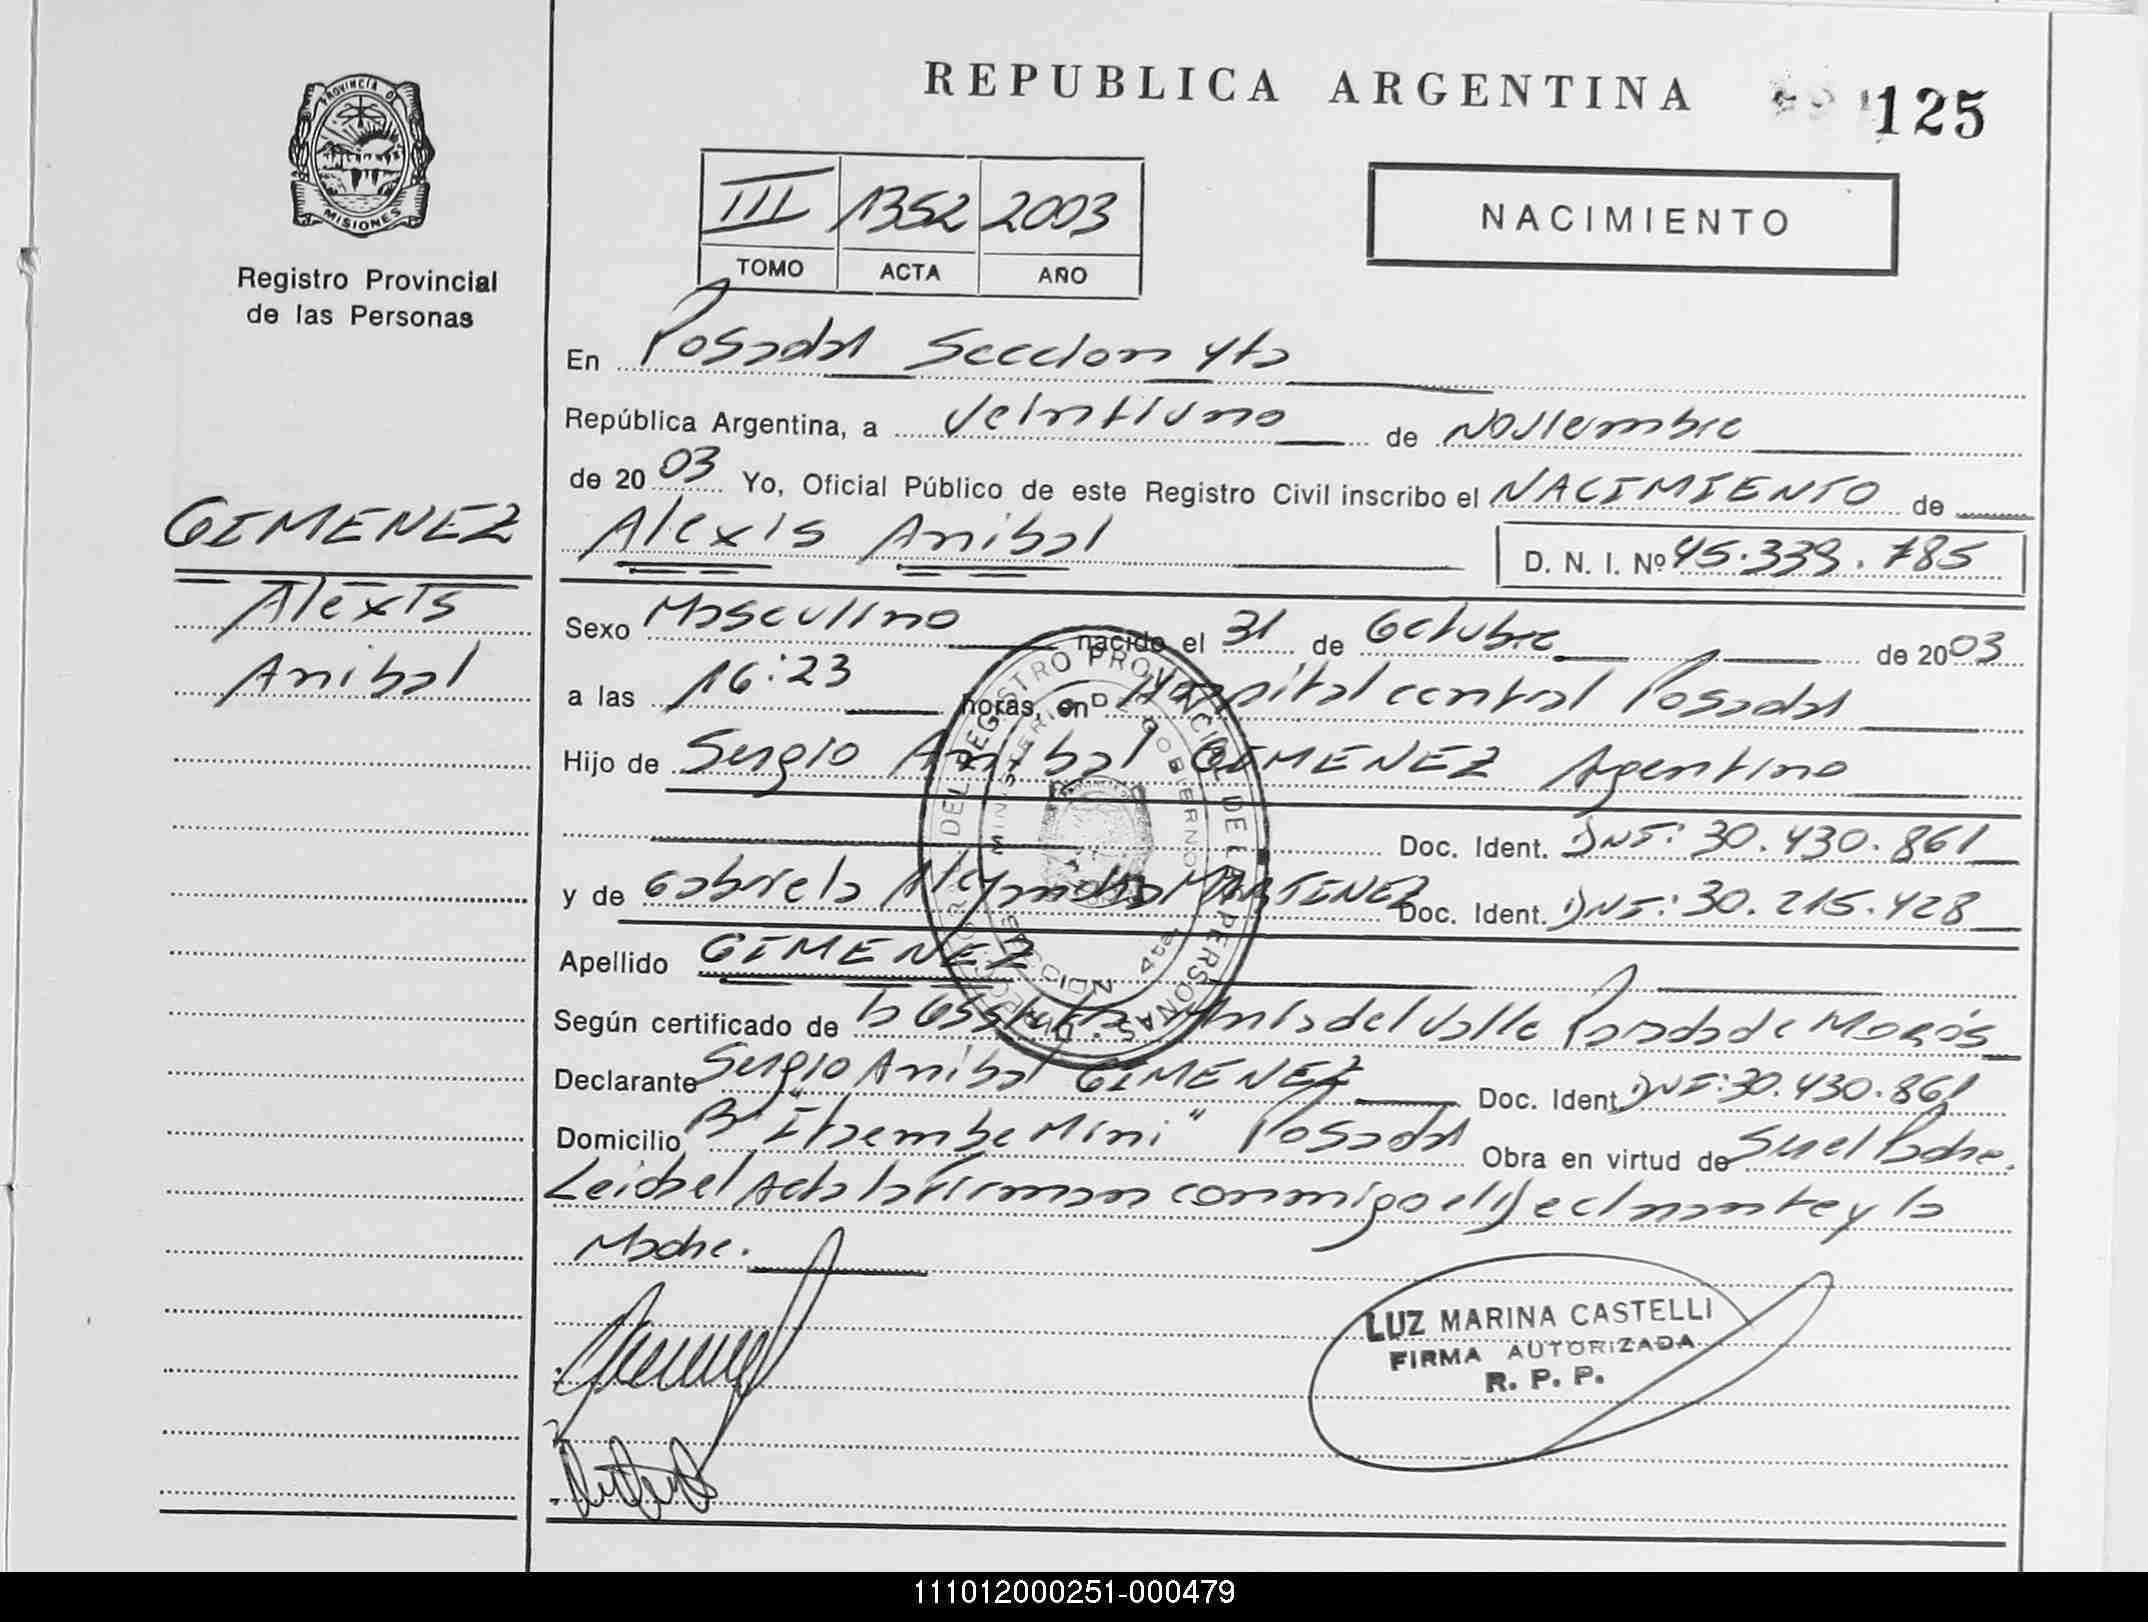 PROVINCIA DE
MISIONES
Registro Provincial
de las Personas
REPUBLICA ARGENTINA
125
III 1352 2003
TOMO ACTA AÑO
NACIMIENTO
En Posadas Seccion 4ta
República Argentina, a Veintiuno de Noviembre
de 2003 Yo, Oficial Público de este Registro Civil inscribo el NACIMIENTO de
GIMENEZ
Alexis
Anibal
Alexis Anibal
D. N. I. Nº 45.339.785
Sexo Masculino nacido el 31 de Octubre de 2003
a las 16:23 horas, en Hospital central Posadas
Hijo de Sergio Anibal GIMENEZ Agentino
Doc. Ident. DNI: 30.430.861
y de Gabriela Alejandra MARTINEZ Doc. Ident. DNI: 30.215.428
Apellido GIMENEZ
Según certificado de la del Valle Posada de
Declarante Sergio Anibal GIMENEZ Doc. Ident DNI: 30.430.861
Domicilio B° "Itaembe Mini" Posadas Obra en virtud de Ser el Padre.
Leida el Acta la firman conmigo el Declarante y la
Madre.
DIR. GRAL. DEL REGISTRO PROVINCIAL DE LAS PERSONAS
MINISTERIO DE GOBIERNO
SECCION 4ta.
LUZ MARINA CASTELLI
FIRMA AUTORIZADA
R. P. P.
111012000251-000479